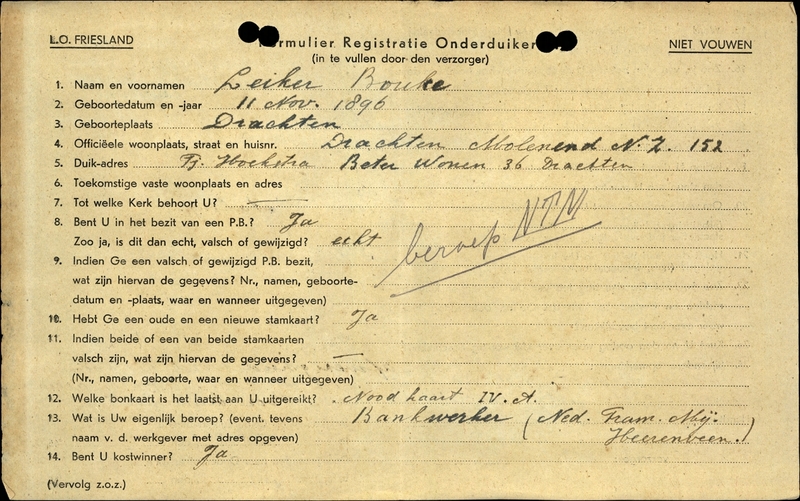 L.O. FRIESLAND
Formulier Registratie Onderduiker
NIET VOUWEN
(in te vullen door den verzorger)
1. Naam en voornamen Leiker Bouke
2. Geboortedatum en -jaar 11 Nov. 1896
3. Geboorteplaats Drachten
4. Officiëele woonplaats, straat en huisnr. Drachten Molenend N.Z. 152
5. Duik-adres Hoekstra Beter Wonen 36 Drachten
6. Toekomstige vaste woonplaats en adres
7. Tot welke Kerk behoort U? —
8. Bent U in het bezit van een P.B.? Ja
Zoo ja, is dit dan echt, valsch of gewijzigd? echt
beroep NTM
9. Indien Ge een valsch of gewijzigd P.B. bezit,
wat zijn hiervan de gegevens? Nr., namen, geboorte-
datum en -plaats, waar en wanneer uitgegeven)
10. Hebt Ge een oude en een nieuwe stamkaart? Ja
11. Indien beide of een van beide stamkaarten
valsch zijn, wat zijn hiervan de gegevens? —
(Nr., namen, geboorte, waar en wanneer uitgegeven)
12. Welke bonkaart is het laatst aan U uitgereikt? Noodkaart IV. A.
13. Wat is Uw eigenlijk beroep? (event. tevens Bankwerker (Ned. Tram. Mij.
naam v. d. werkgever met adres opgeven) Heerenveen.)
14. Bent U kostwinner? Ja
(Vervolg z.o.z.)